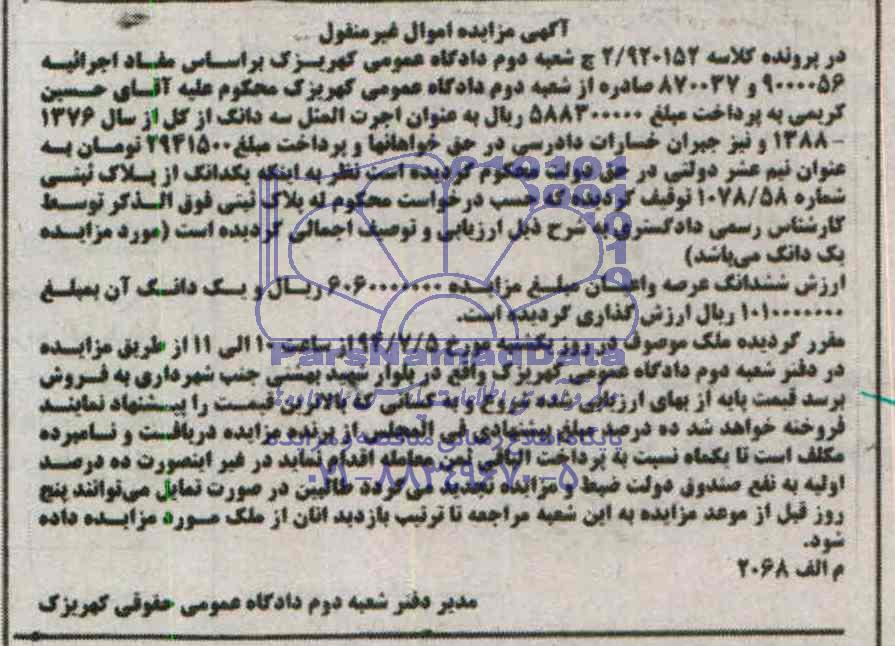 آگهی مزایده اموال غیرمنقول
در پرونده کلاسه ۲/۹۲۰۱۵۲ ج شعبه دوم دادگاه عمومی کهریزک براساس مفاد اجرائیه
۹۰۰۰۰۵۶ و ۸۷۰۰۳۷ صادره از شعبه دوم دادگاه عمومی کهریزک محکوم علیه آقای حسین
کریمی به پرداخت مبلغ ۵۸۸۳۰۰۰۰۰ ریال به عنوان اجرت المثل سه دانگ از کل از سال ۱۳۷۶
-۱۳۸۸ و نیز جبران خسارات دادرسی در حق خواهانها و پرداخت مبلغ ۲۹۴۱۵۰۰ تومان به
عنوان نیم عشر دولتی در حق دولت محکوم گردیده است نظر به اینکه یکدانگ از پلاک ثبتی
شماره ۱۰۷۸/۵۸ توقیف گردیده که حسب درخواست محکوم له پلاک ثبتی فوق الذکر توسط
کارشناس رسمی دادگستری به شرح ذیل ارزیابی و توصیف اجمالی گردیده است (مورد مزایده
یک دانگ می‌باشد)
ارزش ششدانگ عرصه واعیان مبلغ مزایده ۶۰۶۰۰۰۰۰۰۰ ریال و یک دانگ آن بمبلغ
۱۰۱۰۰۰۰۰۰۰ ریال ارزش گذاری گردیده است.
مقرر گردیده ملک موصوف در روز یکشنبه مورخ ۹۴/۷/۵ از ساعت ۱۰ الی ۱۱ از طریق مزایده
در دفتر شعبه دوم دادگاه عمومی کهریزک واقع در بلوار شهید بهشتی جنب شهرداری به فروش
برسد قیمت پایه از بهای ارزیابی شده شروع و به کسانی که بالاترین قیمت را پیشنهاد نمایند
فروخته خواهد شد ده درصد مبلغ پیشنهادی فی المجلس از برنده مزایده دریافت و نامبرده
مکلف است تا یکماه نسبت به پرداخت الباقی ثمن معامله اقدام نماید در غیر اینصورت ده درصد
اولیه به نفع صندوق دولت ضبط و مزایده تجدید می گردد طالبین در صورت تمایل می‌توانند پنج
روز قبل از موعد مزایده به این شعبه مراجعه تا ترتیب بازدید انان از ملک مورد مزایده داده
شود.
م الف ۲۰۶۸
مدیر دفتر شعبه دوم دادگاه عمومی حقوقی کهریزک
ParsNamadData
پایگاه اطلاع رسانی مناقصه و مزایده
۰۲۱-۸۸۳۴۹۶۷۰-۵